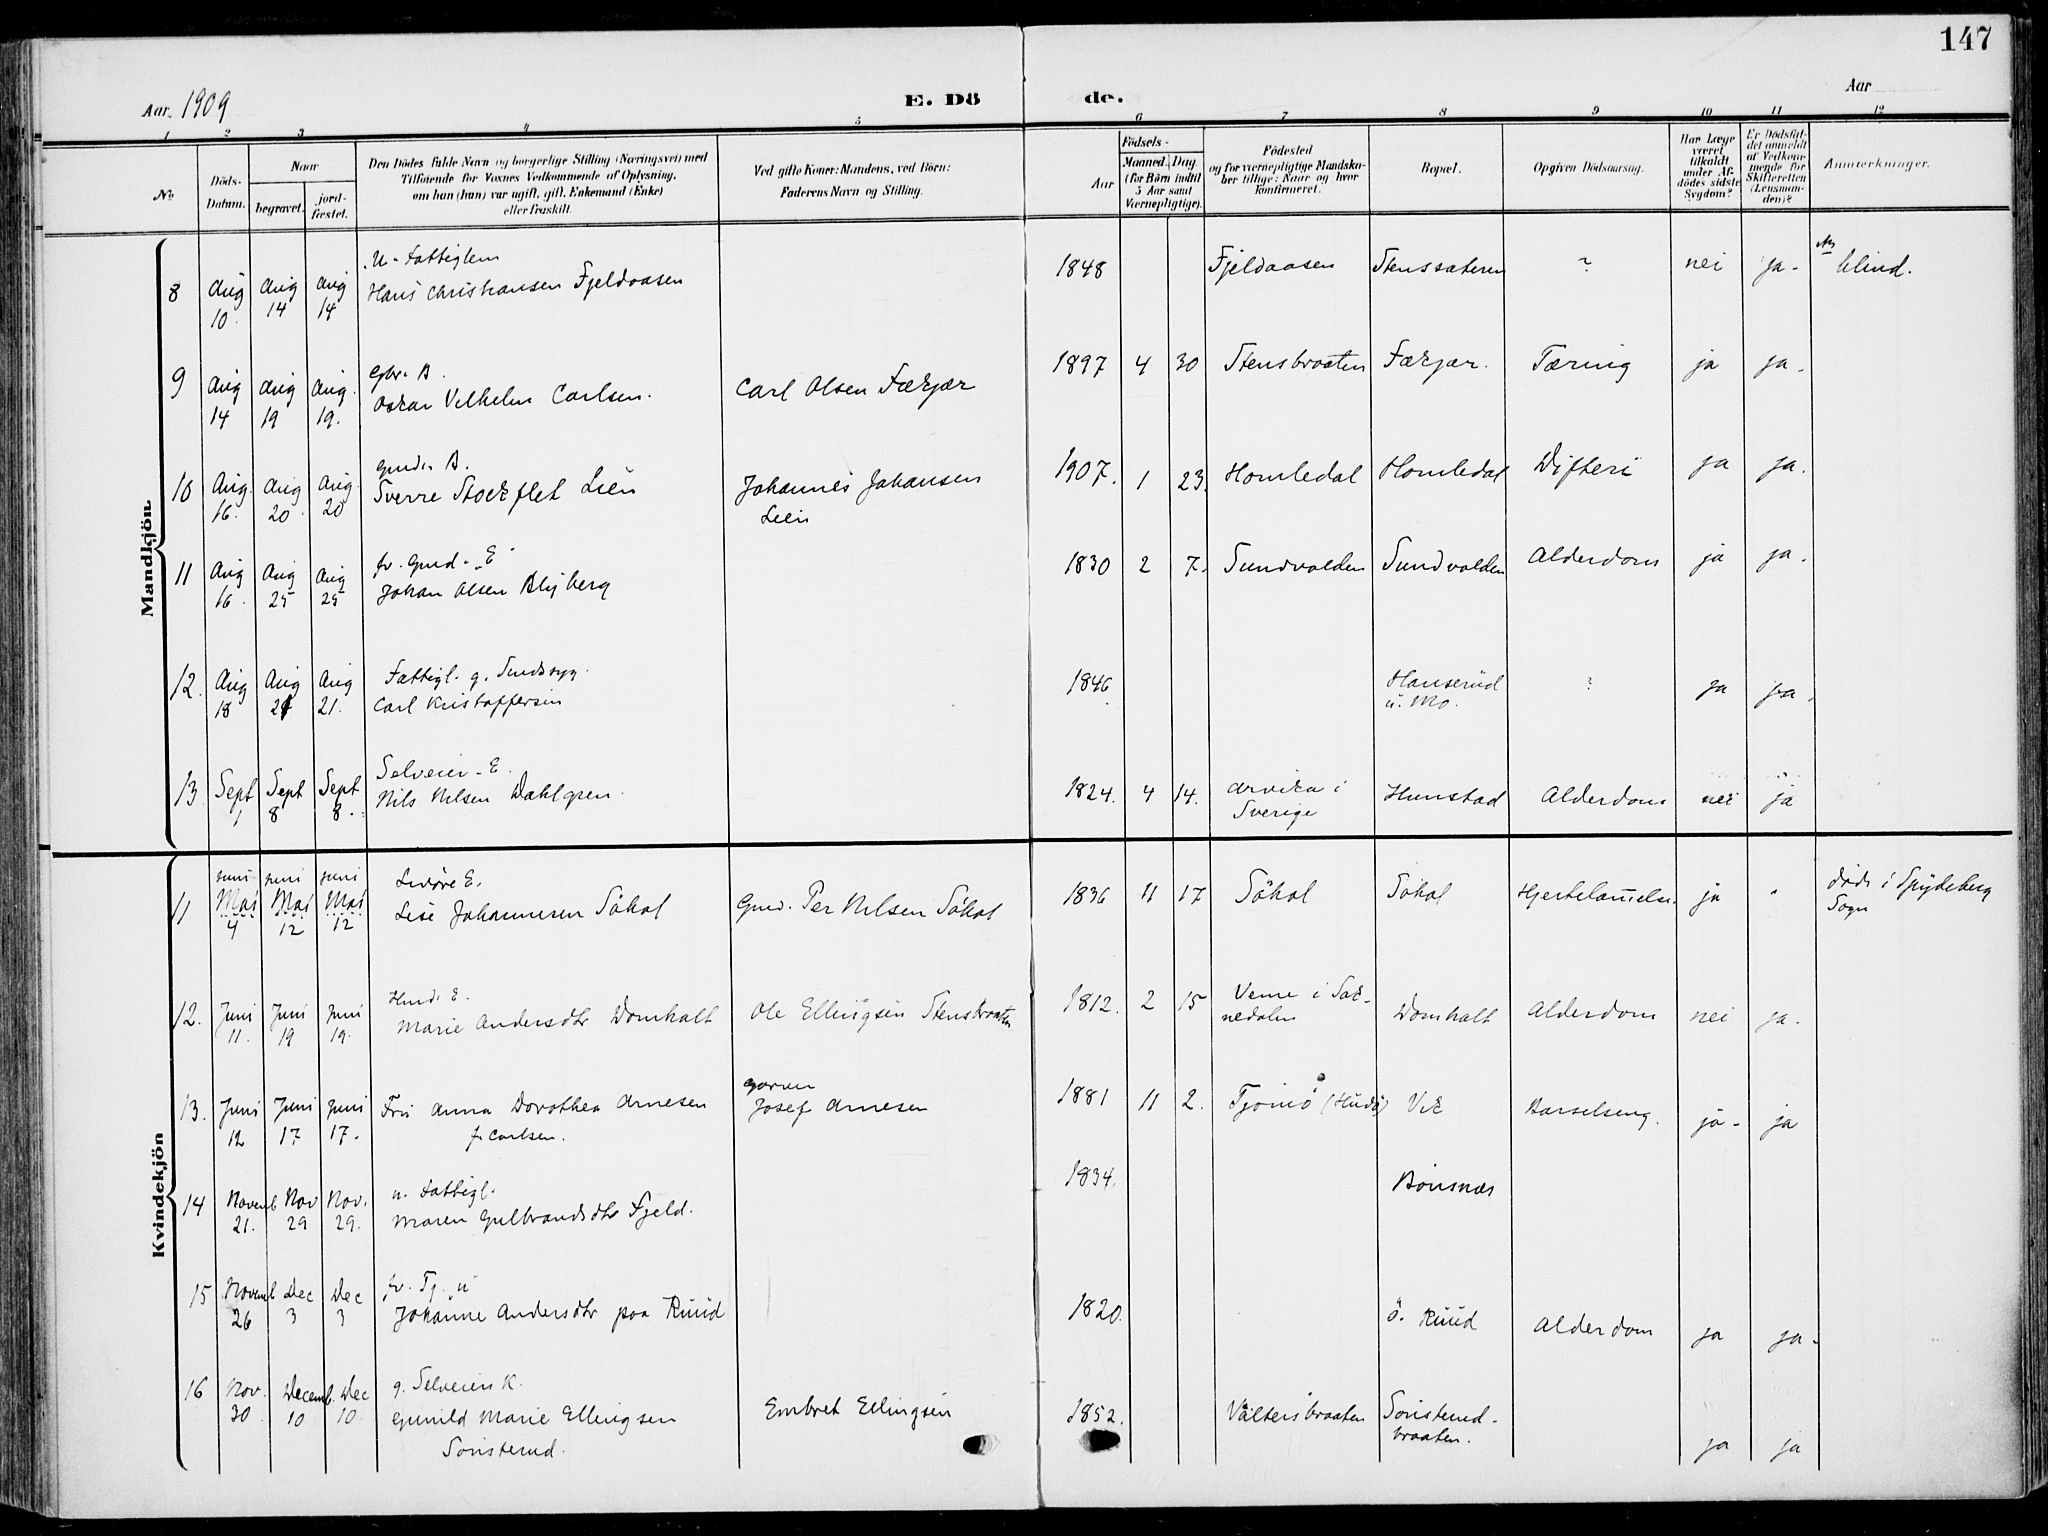 147
Aar. 1909
E. Dö
de.
Aar
1 2 3 4 5 6 7 8 9 10 11 12
No
Döds-Datum.
Naar
begravet.
jord-fæstet.
Den Dödes fulde Navn og borgerlige Stilling (Næringsvei) med
Tilföiende for Voxnes Vedkommende af Oplysning,
om han (hun) var ugift, gift, Enkemand (Enke)
eller fraskilt.
Ved gifte Koner: Mandens, ved Börn:
Faderens Navn og Stilling.
Födsels-
Aar
Maaned. Dag
(for Börn indtil
5 Aar samt
Værnepligtige).
Födested
og for værnepligtige Mandska-
ber tillige: Naar og hvor
konfirmeret.
Bopæl.
Opgiven Dödsaarsag.
Har Læge
været
tilkaldt
under Af-
dödes sidste
Sygdom?
Er Dödsfal-
det anmeldt
af Vedkom-
mende for
Skifteretten
(Lensman-
den)?
Anmerkninger.
Mandkjön.
8 Aug 10. Aug 14 Aug 14 U. Fattiglem
Hans Christiansen Fjeldaasen 1848 Fjeldaasen Stenssæteren ? nei ja. blind.
9 Aug 14 Aug 19 Aug. 19.
Oskar Vilhelm Carlsen. Carl Olsen Færjær 1897 4 30 Stensbraaten Færjær. Tæring ja ja.
10 Aug. 16. Aug 20. Aug. 20 Gmd. B.
Sverre Stockflet Lien Johannes Johansen
Lien 1907. 1 23. Homledal Homledal Difteri ja ja.
11 Aug 16. Aug 25 Aug 25 fv. Gmd. E
Johan Olsen Blyberg 1830 2 7. Sundvolden Sundvolden Alderdom ja ja.
12. Aug 18 Aug 21 Aug 21. Fattigl. g. Sindssyg.
Carl Kristoffersen 1846. Hanserud
u. Mo. ? ja ja.
13 Sept 1 Sept 8 Sept 8. Selveier. E.
Nils Nilsen Dahlgren. 1824. 4 14. Arvika i
Sverige Hunstad Alderdom nei ja
Kvindekjön
11 juni Mai 4 juni Mai 12 juni Mai 12
Lise Johannesen Såhol Gmd. Per Nilsen Såhol 1836 11 17 Såhol Såhol ja " död i Spydeberg
Sogn
12. Juni 11. Juni 19 Juni 19. Husm. E.
Marie Andersdtr Domholt Ole Ellingsen Stensbraaten 1812. 2 15 Veme i Sok-
nedalen Domholt Alderdom nei ja.
13. Juni 12 Juni 17 Juni 17. Fru Anna Dorothea Arnesen
f. Carlsen. Garver
Josef Arnesen 1881 11 2. Tjömö (Hudö) Vik Barselseng. ja. ja
14 Novemb 21. Nov 29 Nov. 29. u. Fattigl.
Maren Gulbrandsdtr Fjeld. 1834. Bönsnæs
15 Novemb 26 Dec 3 Dec 3 fv. Tj. u
Johanne Andersdtr paa Ruud 1820. ö. Ruud Alderdom ja ja.
16 Nov. 30 Decemb. 10 Dec 10. g. Selveiers K.
Gunild Marie Ellingsen
Sönsterud. Embret Ellingsen 1852. Vältersbraaten Sönsterud-
braaten. ja ja